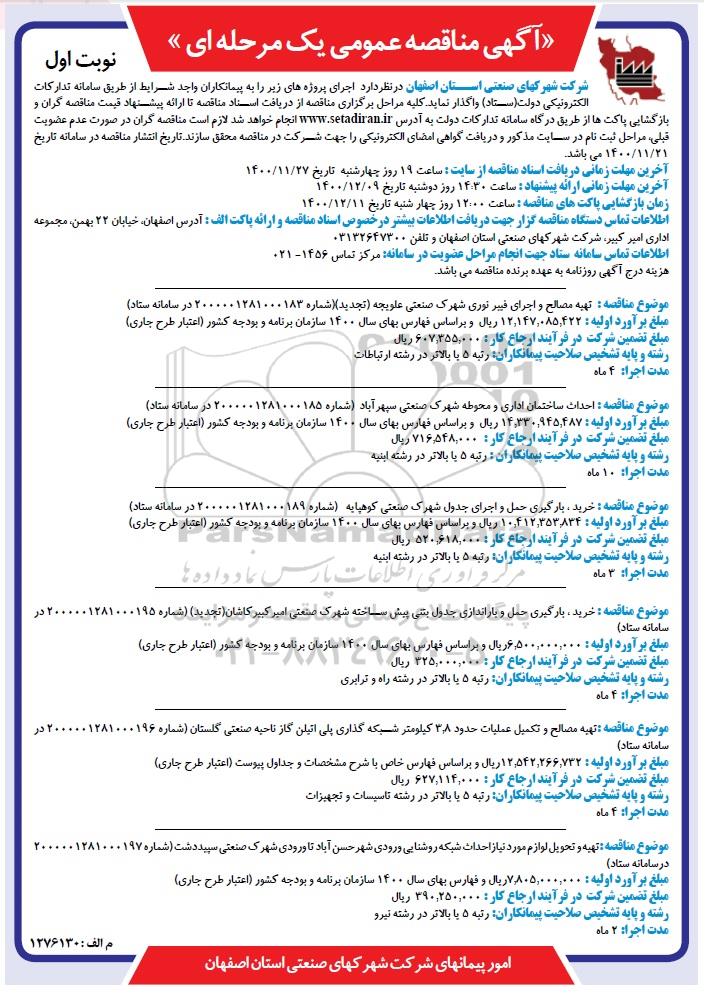 «آگهی مناقصه عمومی یک مرحله ای »
نوبت اول
شرکت شهرکهای صنعتی اســـتان اصفهان درنظردارد اجرای پروژه های زیر را به پیمانکاران واجد شــرایط از طریق سامانه تدارکات
الکترونیکی دولت(ستاد) واگذار نماید.کلیه مراحل برگزاری مناقصه از دریافت اسـناد مناقصه تا ارائه پیشـنهاد قیمت مناقصه گران و
بازگشایی پاکت ها از طریق درگاه سامانه تدارکات دولت به آدرس www.setadiran.ir انجام خواهد شد لازم است مناقصه گران در صورت عدم عضویت
قبلی، مراحل ثبت نام در سـایت مذکور و دریافت گواهی امضای الکترونیکی را جهت شــرکت در مناقصه محقق سازند.تاریخ انتشار مناقصه در سامانه تاریخ
۱۴۰۰/۱۱/۲۱ می باشد.
آخرین مهلت زمانی دریافت اسناد مناقصه از سایت : ساعت ۱۹ روز چهارشنبه تاریخ ۱۴۰۰/۱۱/۲۷
آخرین مهلت زمانی ارائه پیشنهاد : ساعت ۱۴:۳۰ روز دوشنبه تاریخ ۱۴۰۰/۱۲/۰۹
زمان بازگشایی پاکت های مناقصه : ساعت ۱۲:۰۰ روز چهار شنبه تاریخ ۱۴۰۰/۱۲/۱۱
اطلاعات تماس دستگاه مناقصه گزار جهت دریافت اطلاعات بیشتر درخصوص اسناد مناقصه و ارائه پاکت الف : آدرس اصفهان، خیابان ۲۲ بهمن، مجموعه
اداری امیر کبیر، شرکت شهرکهای صنعتی استان اصفهان و تلفن ۰۳۱۳۲۶۴۷۳۰۰
اطلاعات تماس سامانه ستاد جهت انجام مراحل عضویت در سامانه: مرکز تماس ۱۴۵۶- ۰۲۱
هزینه درج آگهی روزنامه به عهده برنده مناقصه می باشد.
موضوع مناقصه : تهیه مصالح و اجرای فیبر نوری شهرک صنعتی علویجه (تجدید)(شماره ۲۰۰۰۰۰۱۲۸۱۰۰۰۱۸۳ در سامانه ستاد)
مبلغ برآورد اولیه : ۱۲,۱۴۷,۰۸۵,۴۲۲ ریال و براساس فهارس بهای سال ۱۴۰۰ سازمان برنامه و بودجه کشور (اعتبار طرح جاری)
مبلغ تضمین شرکت در فرآیند ارجاع کار : ۶۰۷,۳۵۵,۰۰۰ ریال
رشته و پایه تشخیص صلاحیت پیمانکاران: رتبه ۵ یا بالاتر در رشته ارتباطات
مدت اجرا: ۴ ماه
موضوع مناقصه : احداث ساختمان اداری و محوطه شهرک صنعتی سپهرآباد (شماره ۲۰۰۰۰۰۱۲۸۱۰۰۰۱۸۵ در سامانه ستاد)
مبلغ برآورد اولیه : ۱۴,۳۳۰,۹۴۵,۴۸۷ ریال و براساس فهارس بهای سال ۱۴۰۰ سازمان برنامه و بودجه کشور (اعتبار طرح جاری)
مبلغ تضمین شرکت در فرآیند ارجاع کار : ۷۱۶,۵۴۸,۰۰۰ ریال
رشته و پایه تشخیص صلاحیت پیمانکاران : رتبه ۵ یا بالاتر در رشته ابنیه
مدت اجرا: ۱۰ ماه
موضوع مناقصه : خرید ، بارگیری حمل و اجرای جدول شهرک صنعتی کوهپایه (شماره ۲۰۰۰۰۰۱۲۸۱۰۰۰۱۸۹ در سامانه ستاد)
مبلغ برآورد اولیه : ۱۰,۴۱۲,۳۵۳,۸۳۴ ریال و براساس فهارس بهای سال ۱۴۰۰ سازمان برنامه و بودجه کشور (اعتبار طرح جاری)
مبلغ تضمین شرکت در فرآیند ارجاع کار : ۵۲۰,۶۱۸,۰۰۰ ریال
رشته و پایه تشخیص صلاحیت پیمانکاران: رتبه ۵ یا بالاتر در رشته ابنیه
مدت اجرا: ۳ ماه
ParsNamadData
مرکز فرآوری اطلاعات پارس نماد داده ها
موضوع مناقصه : خرید ، بارگیری حمل و باراندازی جدول بتنی پیش ســاخته شهرک صنعتی امیرکبیرکاشان(تجدید) (شماره ۲۰۰۰۰۰۱۲۸۱۰۰۰۱۹۵ در
سامانه ستاد)
مبلغ برآورد اولیه : ۶,۵۰۰,۰۰۰,۰۰۰ریال و براساس فهارس بهای سال ۱۴۰۰ سازمان برنامه و بودجه کشور (اعتبار طرح جاری)
مبلغ تضمین شرکت در فرآیند ارجاع کار : ۳۲۵,۰۰۰,۰۰۰ ریال
رشته و پایه تشخیص صلاحیت پیمانکاران: رتبه ۵ یا بالاتر در رشته راه و ترابری
مدت اجرا: ۴ ماه
۰۲۱-۸۸۳۴۹۶۷۰-۵
موضوع مناقصه :تهیه مصالح و تکمیل عملیات حدود ۳,۸ کیلومتر شــبکه گذاری پلی اتیلن گاز ناحیه صنعتی گلستان (شماره ۲۰۰۰۰۰۱۲۸۱۰۰۰۱۹۶ در
سامانه ستاد)
مبلغ برآورد اولیه : ۱۲,۵۴۲,۲۶۶,۷۳۲ریال و براساس فهارس خاص با شرح مشخصات و جداول پیوست (اعتبار طرح جاری)
مبلغ تضمین شرکت در فرآیند ارجاع کار : ۶۲۷,۱۱۴,۰۰۰ ریال
رشته و پایه تشخیص صلاحیت پیمانکاران: رتبه ۵ یا بالاتر در رشته تاسیسات و تجهیزات
مدت اجرا: ۴ ماه
موضوع مناقصه :تهیه و تحویل لوازم مورد نیاز احداث شبکه روشنایی ورودی شهر حسن آباد تا ورودی شهرک صنعتی سپیددشت (شماره ۲۰۰۰۰۰۱۲۸۱۰۰۰۱۹۷
در سامانه ستاد)
مبلغ برآورد اولیه : ۷,۸۰۵,۰۰۰,۰۰۰ریال و فهارس بهای سال ۱۴۰۰ سازمان برنامه و بودجه کشور (اعتبار طرح جاری)
مبلغ تضمین شرکت در فرآیند ارجاع کار : ۳۹۰,۲۵۰,۰۰۰ ریال
رشته و پایه تشخیص صلاحیت پیمانکاران: رتبه ۵ یا بالاتر در رشته نیرو
مدت اجرا: ۲ ماه
م الف :۱۲۷۶۱۳۰
امور پیمانهای شرکت شهرکهای صنعتی استان اصفهان